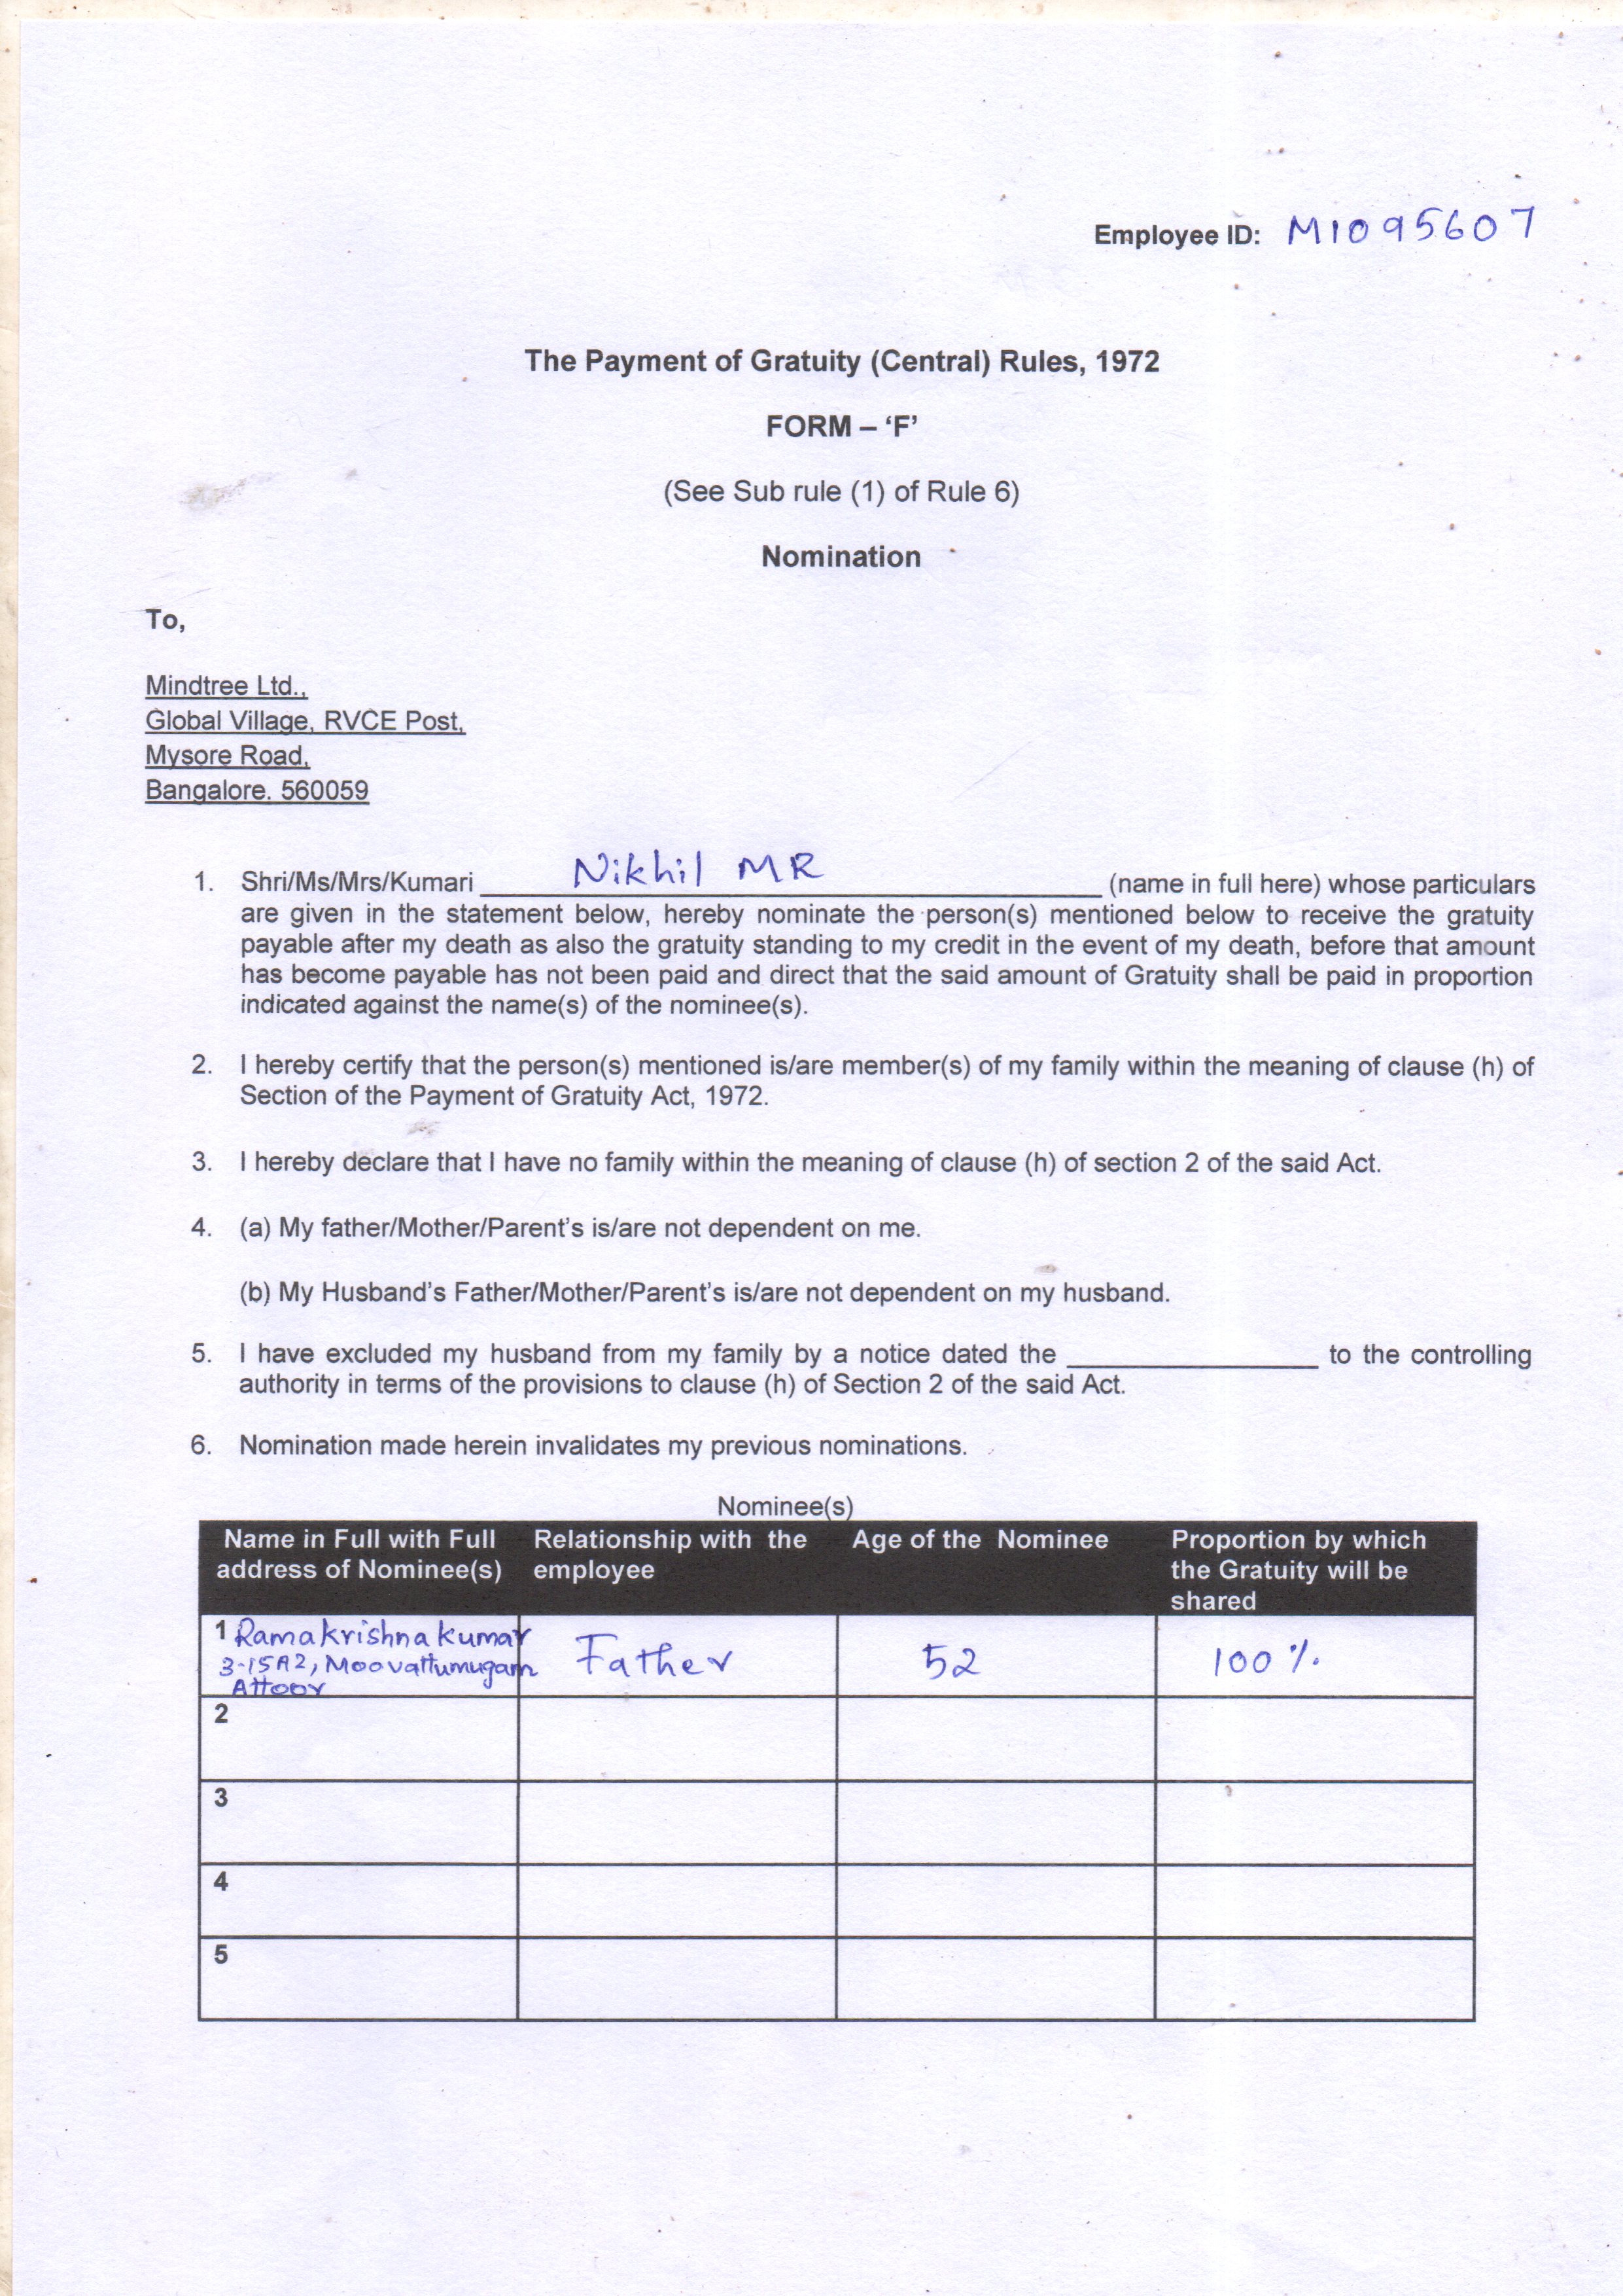 Employee ID: M1095607
The Payment of Gratuity (Central) Rules, 1972
FORM – ‘F’
(See Sub rule (1) of Rule 6)
Nomination
To,
Mindtree Ltd.,
Global Village, RVCE Post,
Mysore Road,
Bangalore. 560059
1. Shri/Ms/Mrs/Kumari Nikhil MR (name in full here) whose particulars
are given in the statement below, hereby nominate the person(s) mentioned below to receive the gratuity
payable after my death as also the gratuity standing to my credit in the event of my death, before that amount
has become payable has not been paid and direct that the said amount of Gratuity shall be paid in proportion
indicated against the name(s) of the nominee(s).
2. I hereby certify that the person(s) mentioned is/are member(s) of my family within the meaning of clause (h) of
Section of the Payment of Gratuity Act, 1972.
3. I hereby declare that I have no family within the meaning of clause (h) of section 2 of the said Act.
4. (a) My father/Mother/Parent’s is/are not dependent on me.
(b) My Husband’s Father/Mother/Parent’s is/are not dependent on my husband.
5. I have excluded my husband from my family by a notice dated the ________________ to the controlling
authority in terms of the provisions to clause (h) of Section 2 of the said Act.
6. Nomination made herein invalidates my previous nominations.
Nominee(s)
Name in Full with Full Relationship with the Age of the Nominee Proportion by which
address of Nominee(s) employee the Gratuity will be
shared
1 Ramakrishnakumar
3-15A2, Moovattumugam Father 52 100 %
Attoor
2
3
4
5